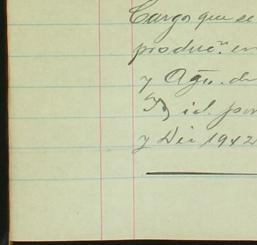 Cargo que se
produc.n en
y Ago. de
id por
y Dic 1942